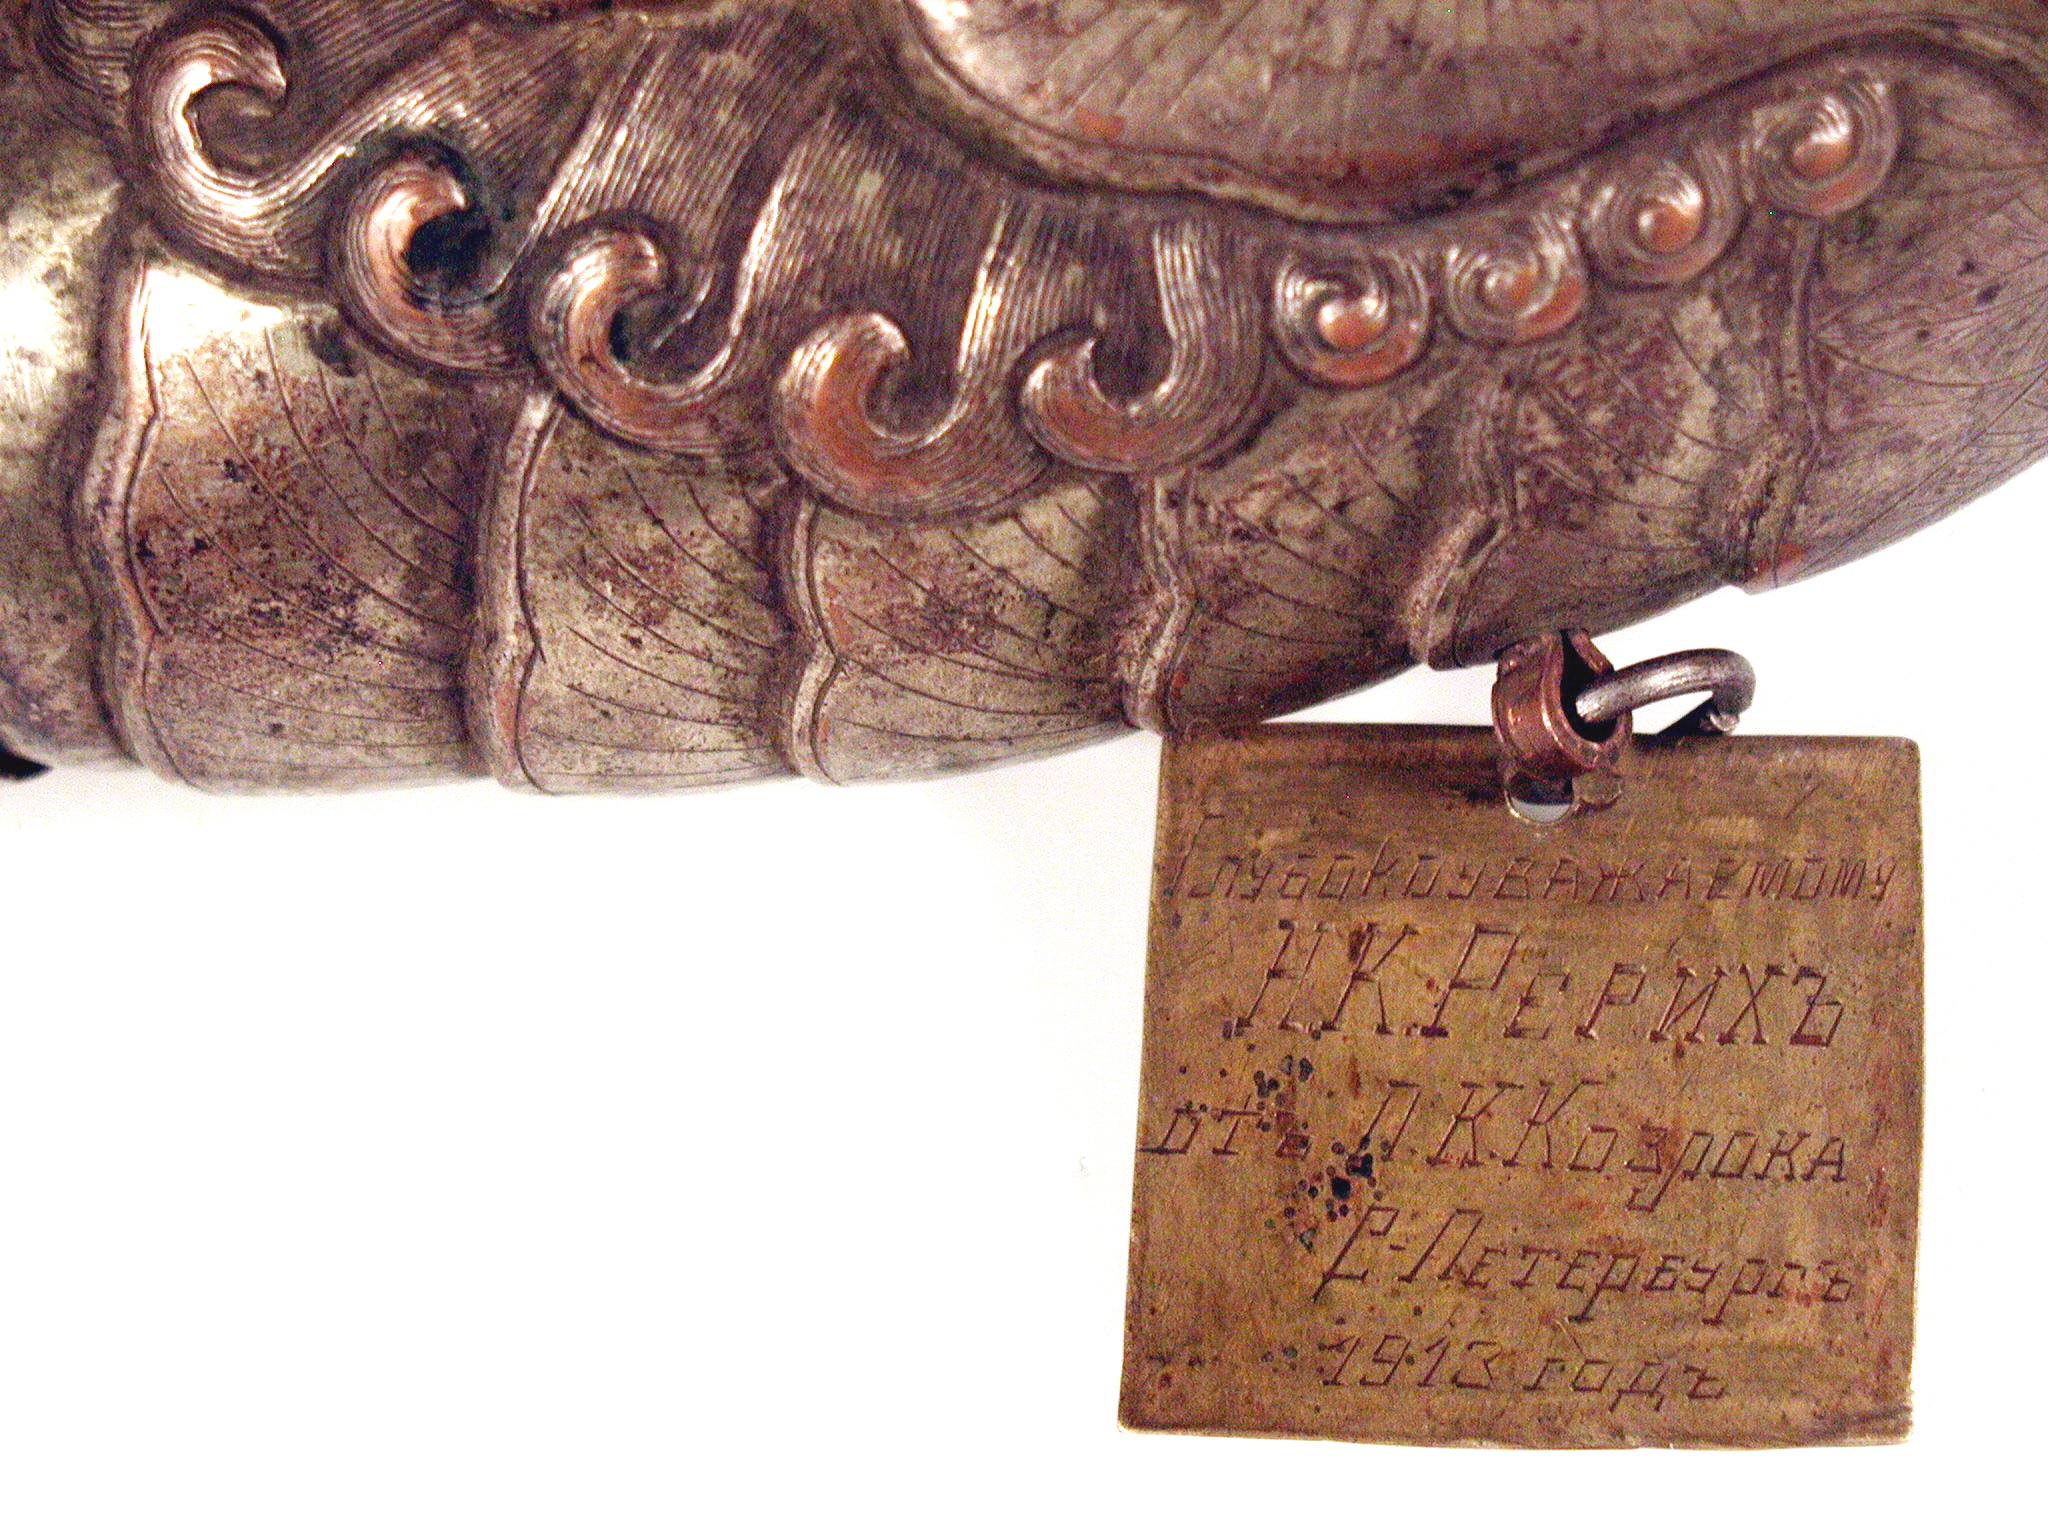 Глубокоуважаемому
Н.К.Рерихъ
отъ П.К.Козрока
С-Петербургъ
1913 годъ